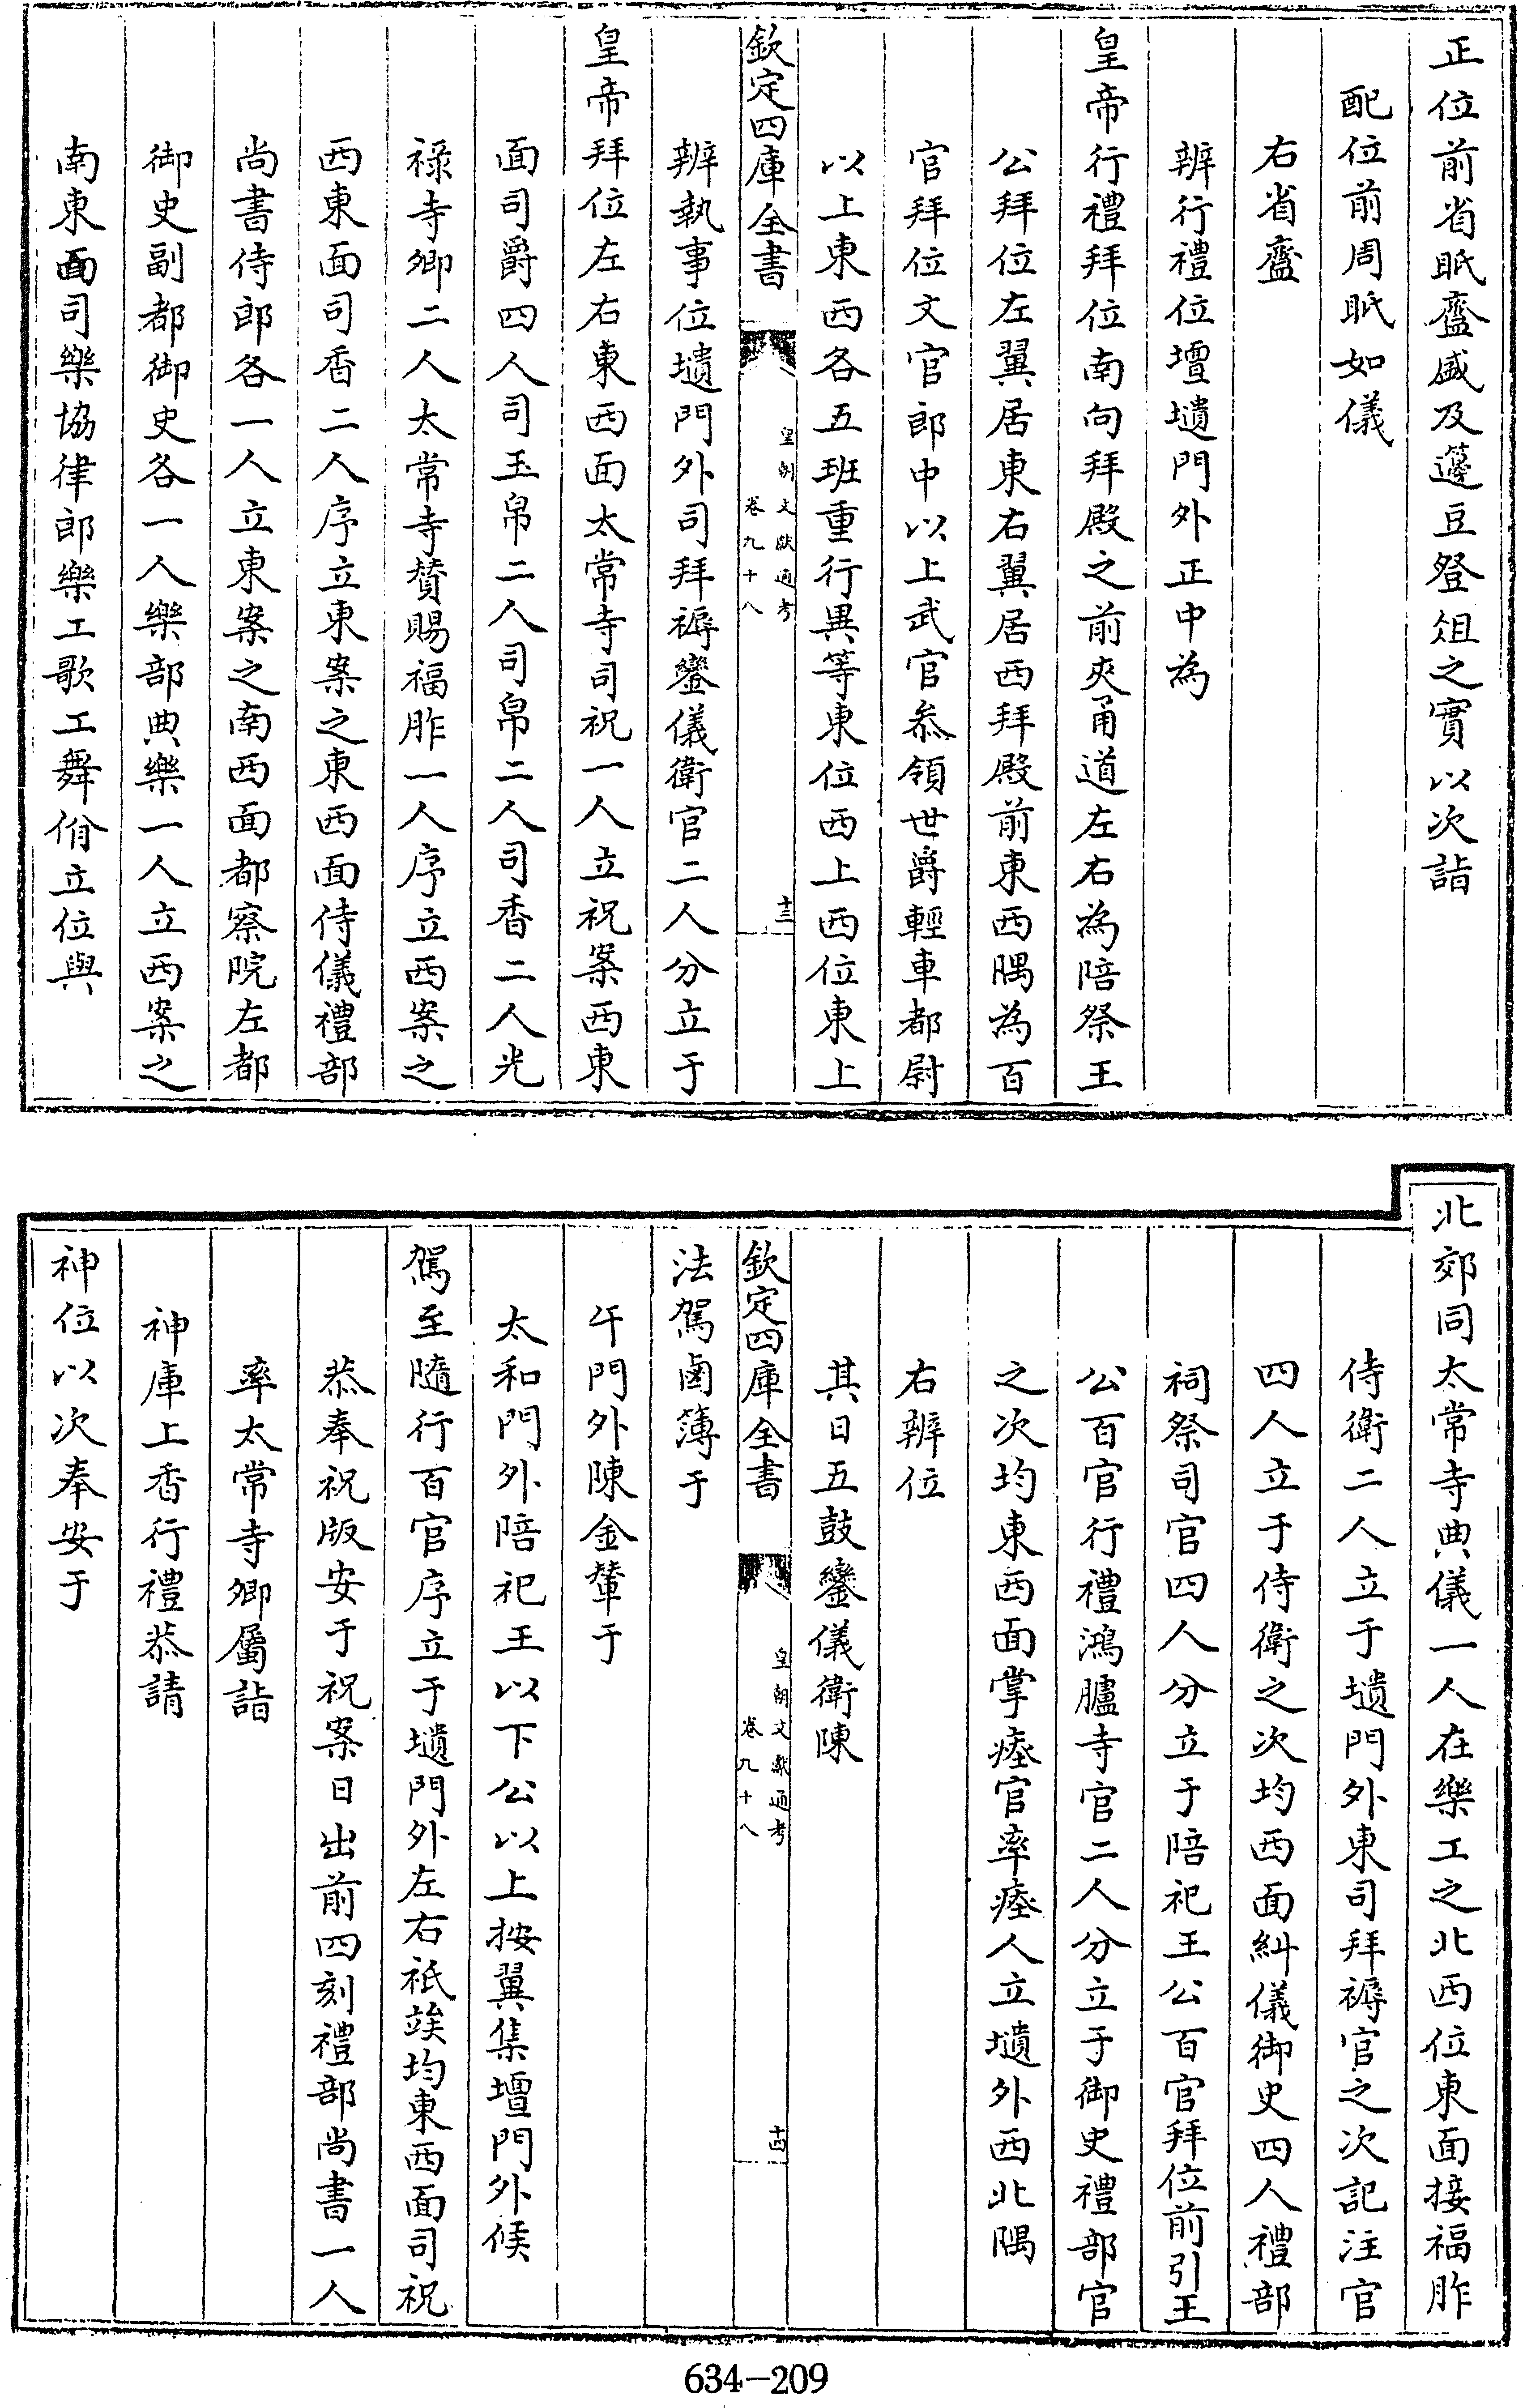 正位前省眡齍盛及籩豆登俎之實以次詣
配位前周眡如儀
右省齍
辨行禮位壇壝門外正中為
皇帝行禮拜位南向拜殿之前夾甬道左右為陪祭王
公拜位左翼居東右翼居西拜殿前東西隅為百
官拜位文官郎中以上武官叅領世爵輕車都尉
以上東西各五班重行異等東位西上西位東上
欽定四庫全書
皇朝文獻通考
卷九十八
十三
辨執事位壝門外司拜褥鑾儀衛官二人分立于
皇帝拜位左右東西面太常寺司祝一人立祝案西東
面司爵四人司玉帛二人司帛二人司香二人光
祿寺卿二人太常寺贊賜福胙一人序立西案之
西東面司香二人序立東案之東西面侍儀禮部
尚書侍郎各一人立東案之南西面都察院左都
御史副都御史各一人樂部典樂一人立西案之
南東面司樂協律郎樂工歌工舞佾立位與
北郊同太常寺典儀一人在樂工之北西位東面接福胙
侍衛二人立于壝門外東司拜褥官之次記注官
四人立于侍衛之次均西面糾儀御史四人禮部
祠祭司官四人分立于陪祀王公百官拜位前引王
公百官行禮鴻臚寺官二人分立于御史禮部官
之次均東西面掌瘞官率瘞人立壝外西北隅
右辨位
其日五鼓鑾儀衛陳
欽定四庫全書
皇朝文獻通考
卷九十八
十四
法駕鹵簿于
午門外陳金輦于
太和門外陪祀王以下公以上按翼集壇門外候
駕至隨行百官序立于壝門外左右祗竢均東西面司祝
恭奉祝版安于祝案日出前四刻禮部尚書一人
率太常寺卿屬詣
神庫上香行禮恭請
神位以次奉安于
634-209